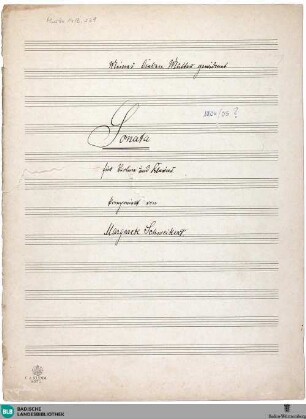 Meiner lieben Mutter gewidmet
1904/05 ?
Sonata
für Violine und Klavier
komponiert von
Margarete Schweikert
BLB
BADISCHE
LANDESBIBLIOTHEK
Baden-Württemberg